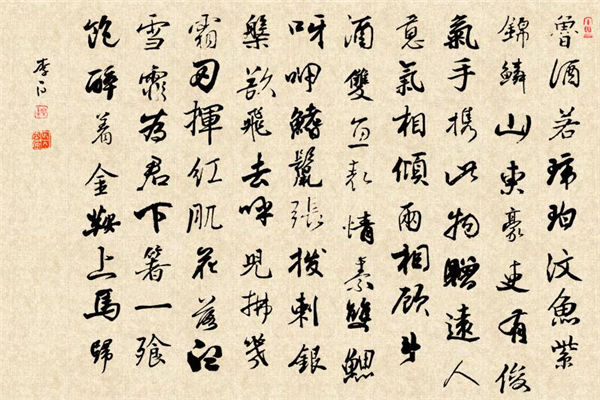 魯酒若琥珀汶魚紫
錦鱗山東豪吏有俊
氣手携此物贈遠人
意氣相傾兩相顧斗
酒雙魚表情素雙鰓
呀呷鰭鬣張撥刺銀
槃欲飛去呼兒拂幾
霜刃揮紅肌花落白
雪霏為君下箸一飱
飽醉着金鞍上馬歸
李白